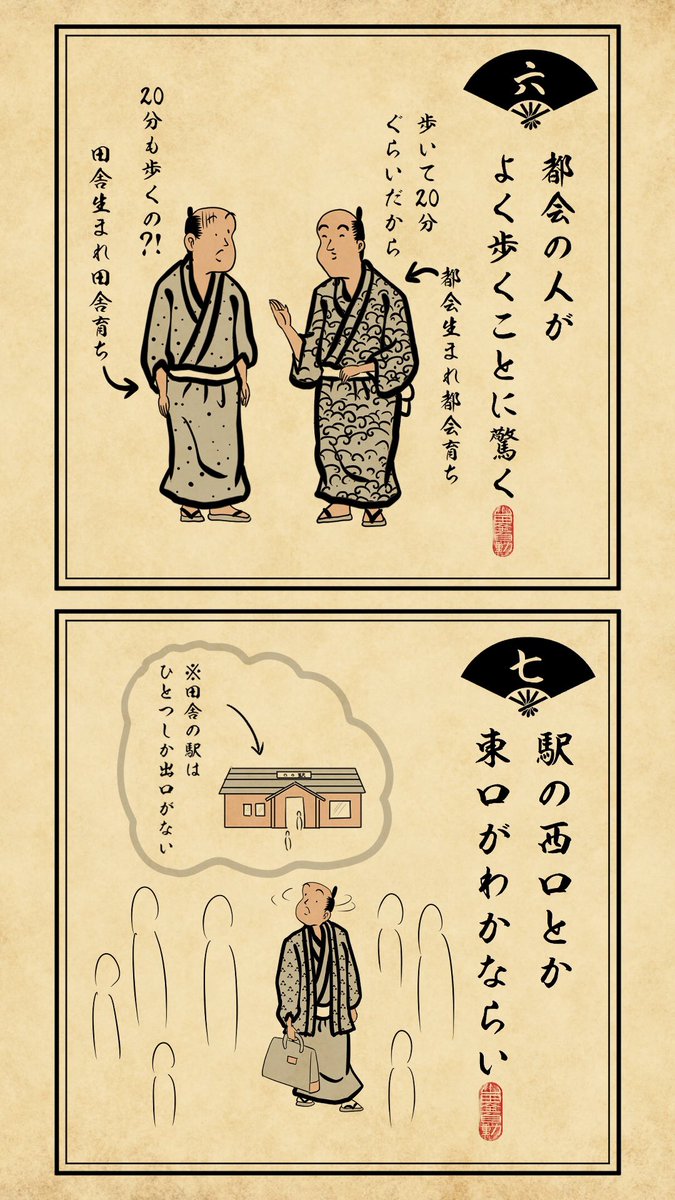 六
都会の人が
よく歩くことに驚く
歩いて20分
ぐらいだから
都会生まれ都会育ち
20分も歩くの?!
田舎生まれ田舎育ち
七
駅の西口とか
東口がわかならい
※田舎の駅は
ひとつしか出口がない